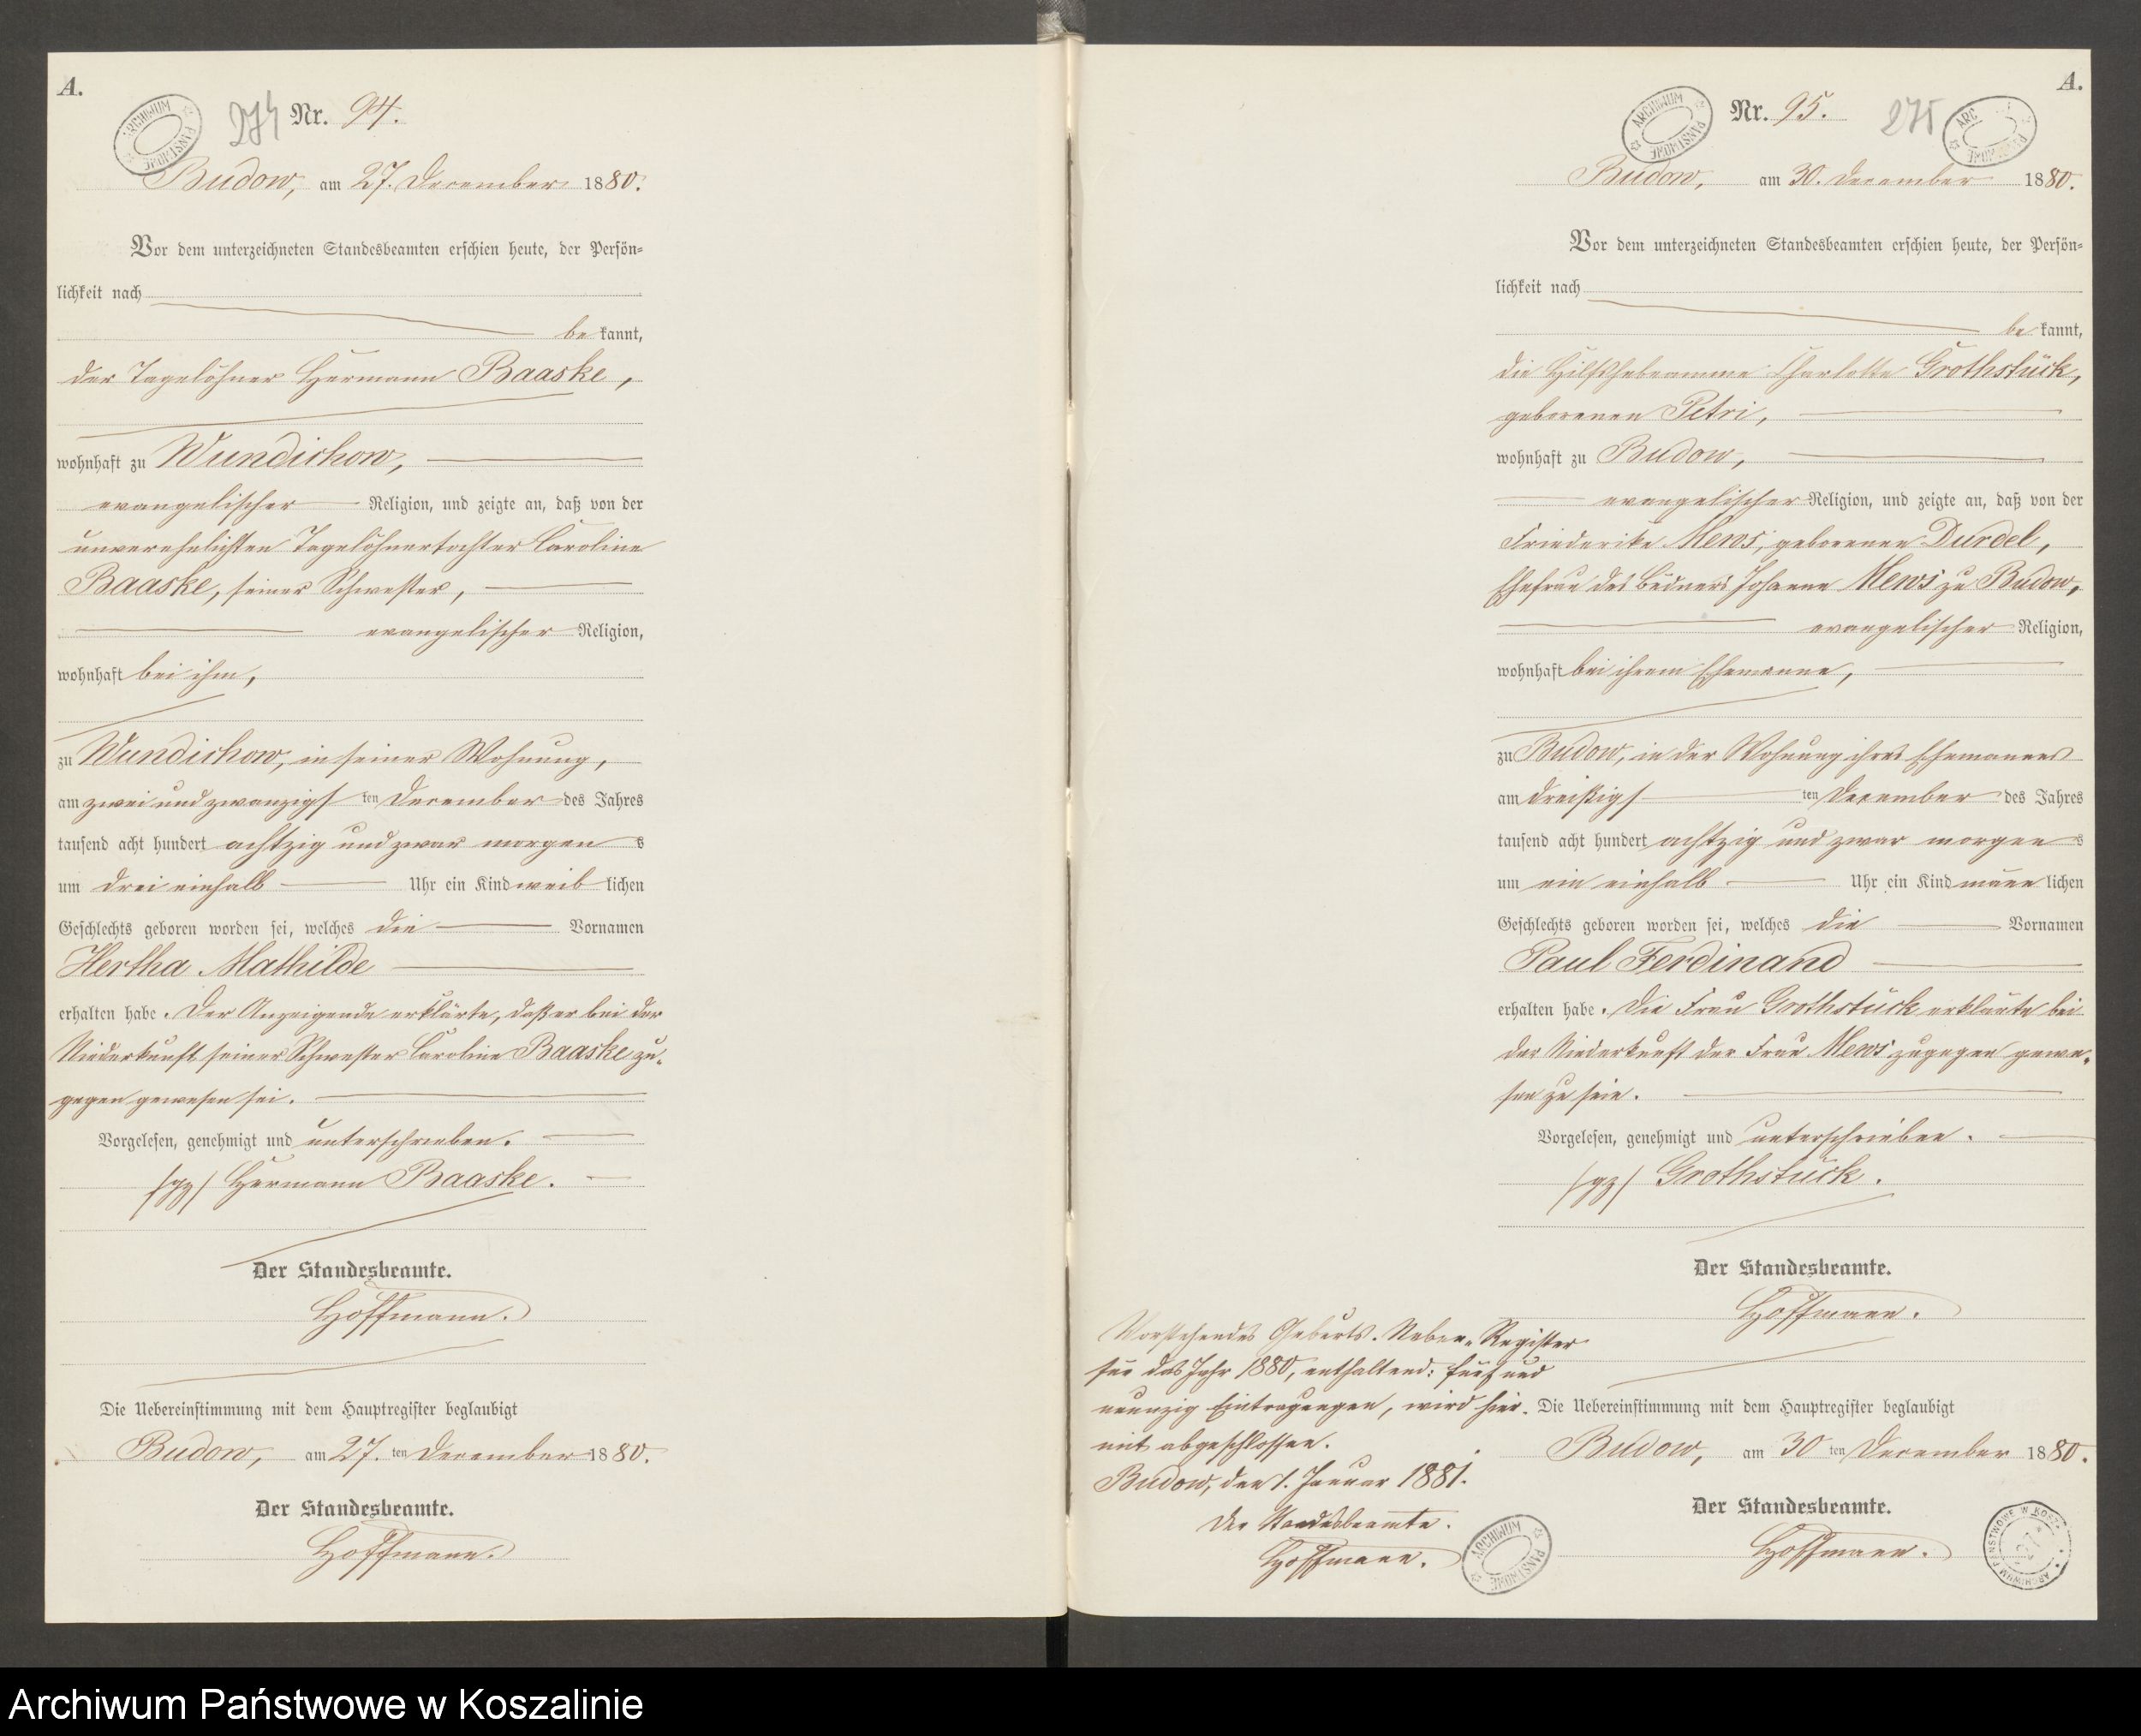 A.
ARCHIWUM PAŃSTWOWE
274 Nr. 94.
Budow, am 27. December 1880.
Vor dem unterzeichneten Standesbeamten erschien heute, der Persön=
lichkeit nach
be kannt,
der Tagelöhner Hermann Baaske,
wohnhaft zu Wundichow,
evangelischer Religion, und zeigte an, daß von der
unverehelichten Tagelöhnertochter Caroline
Baaske, seiner Schwester,
evangelischer Religion,
wohnhaft bei ihm,
zu Wundichow, in seiner Wohnung,
am zwei und zwanzigs ten December des Jahres
tausend acht hundert achtzig und zwar morgen s
um drei einhalb Uhr ein Kind weib lichen
Geschlechts geboren worden sei, welches die Vornamen
Hertha Mathilde
erhalten habe. Der Anzeigende erklärte, daß er bei der
Niederkunft seiner Schwester Caroline Baaske zu=
gegen gewesen sei.
Vorgelesen, genehmigt und unterschrieben.
/gz/ Hermann Baaske.
Der Standesbeamte.
Hoffmann.
Die Uebereinstimmung mit dem Hauptregister beglaubigt
Budow, am 27. ten December 1880.
Der Standesbeamte.
Hoffmann.
A.
ARCHIWUM PAŃSTWOWE
Nr. 95. 275
Budow, am 30. December 1880.
Vor dem unterzeichneten Standesbeamten erschien heute, der Persön=
lichkeit nach
be kannt,
die Hilfshebeamme Charlotte Grothstück,
geborenen Petri,
wohnhaft zu Budow,
evangelischer Religion, und zeigte an, daß von der
Friederike Mews, geborenen Durdel,
Ehefrau des Büdners Johann Mews zu Budow,
evangelischer Religion,
wohnhaft bei ihrem Ehemanne,
zu Budow, in der Wohnung ihres Ehemannes
am dreißigs ten December des Jahres
tausend acht hundert achtzig und zwar morgen s
um ein einhalb Uhr ein Kind männ lichen
Geschlechts geboren worden sei, welches die Vornamen
Paul Ferdinand
erhalten habe. Die Frau Grothstück erklärte bei
der Niederkunft der Frau Mews zugegen gewe=
sen zu sein.
Vorgelesen, genehmigt und unterschrieben.
/gz/ Grothstück.
Der Standesbeamte.
Hoffmann.
Vorstehendes Geburts-Neben-Register
für das Jahr 1880, enthaltend: fünf und
neunzig Eintragungen, wird hier=
mit abgeschlossen.
Budow, den 1. Januar 1881.
Der Standesbeamte.
Hoffmann.
ARCHIWUM PAŃSTWOWE
Die Uebereinstimmung mit dem Hauptregister beglaubigt
Budow, am 30 ten December 1880.
Der Standesbeamte.
Hoffmann.
Archiwum Państwowe w Koszalinie